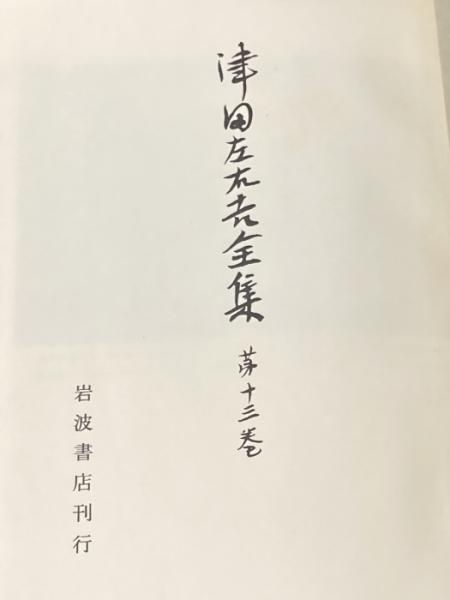 津田左右吉全集 第十三巻
岩波書店刊行